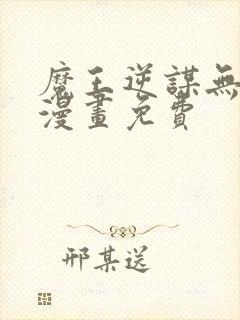 魔王逆謀無
漫畫免費
邢某送